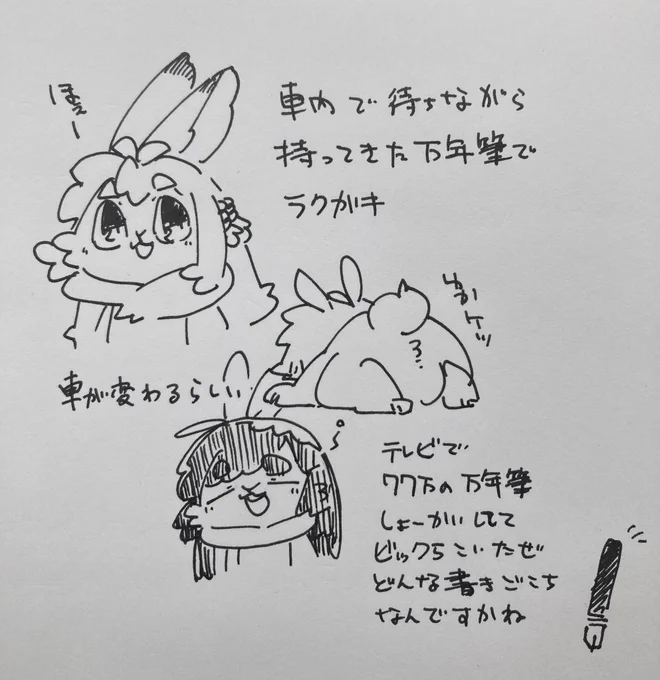 ほぇー
車内で待ちながら
持ってきた万年筆で
ラクガキ
ゆかケツ
車が変わるらしい
テレビで
77万の万年筆
しょーかいしてて
ビックらこいたぜ
どんな書きごこち
なんですかね